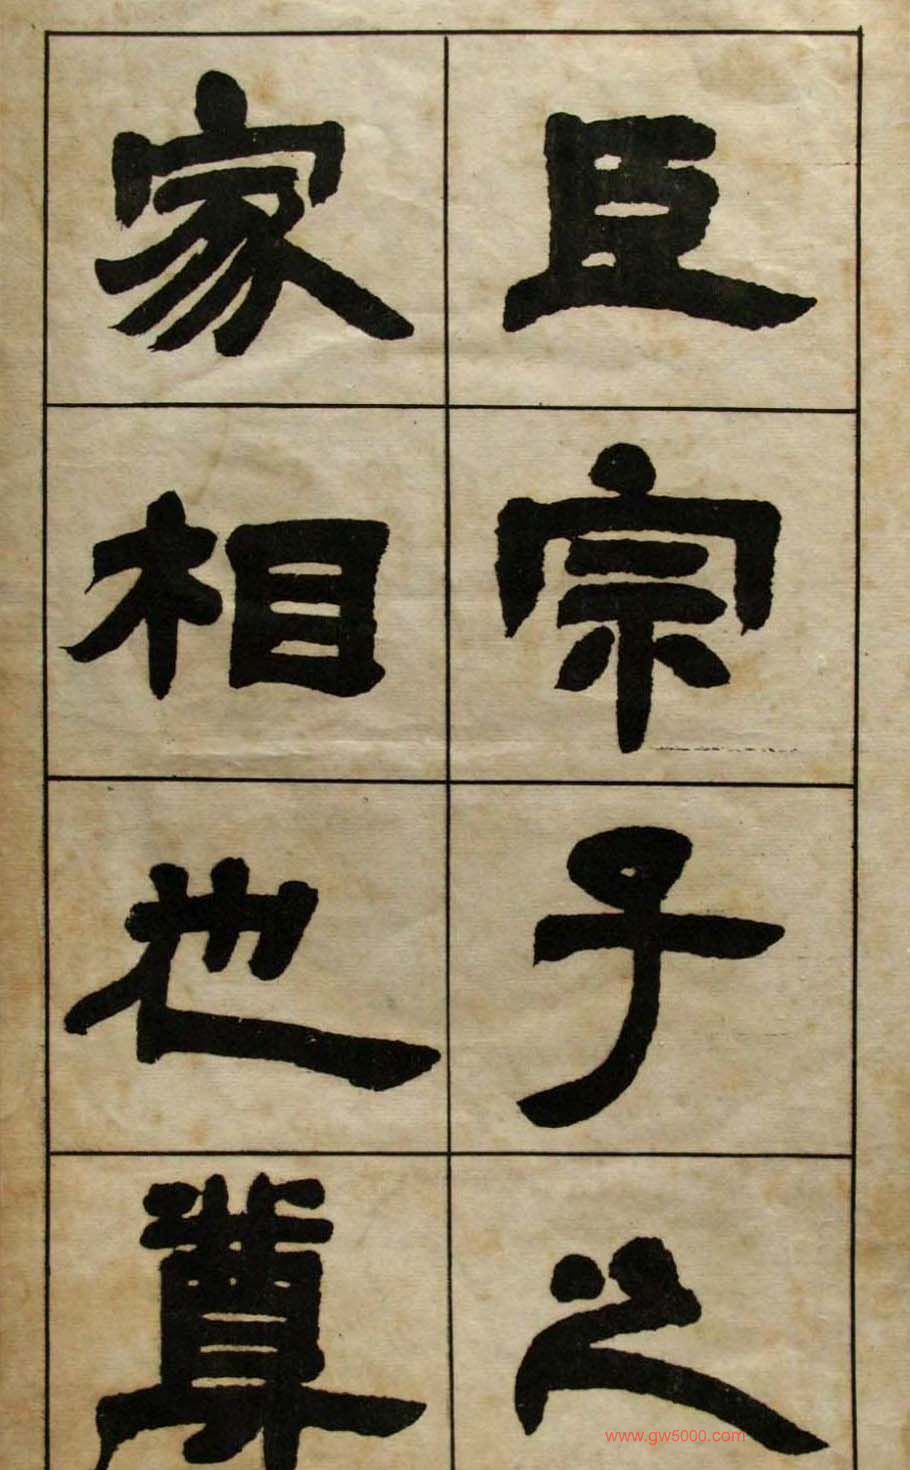 臣宗子之
家相也尊
www.gw5000.com